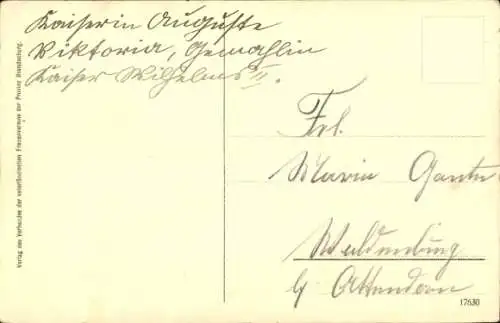 Kaiserin Auguste
Viktoria, Gemahlin
Kaiser Wilhelms II.
Verlag des Verbandes der vaterländischen Frauenvereine der Provinz Brandenburg.
Frl.
Maria
Waldenburg
b/ Attendorn
17630